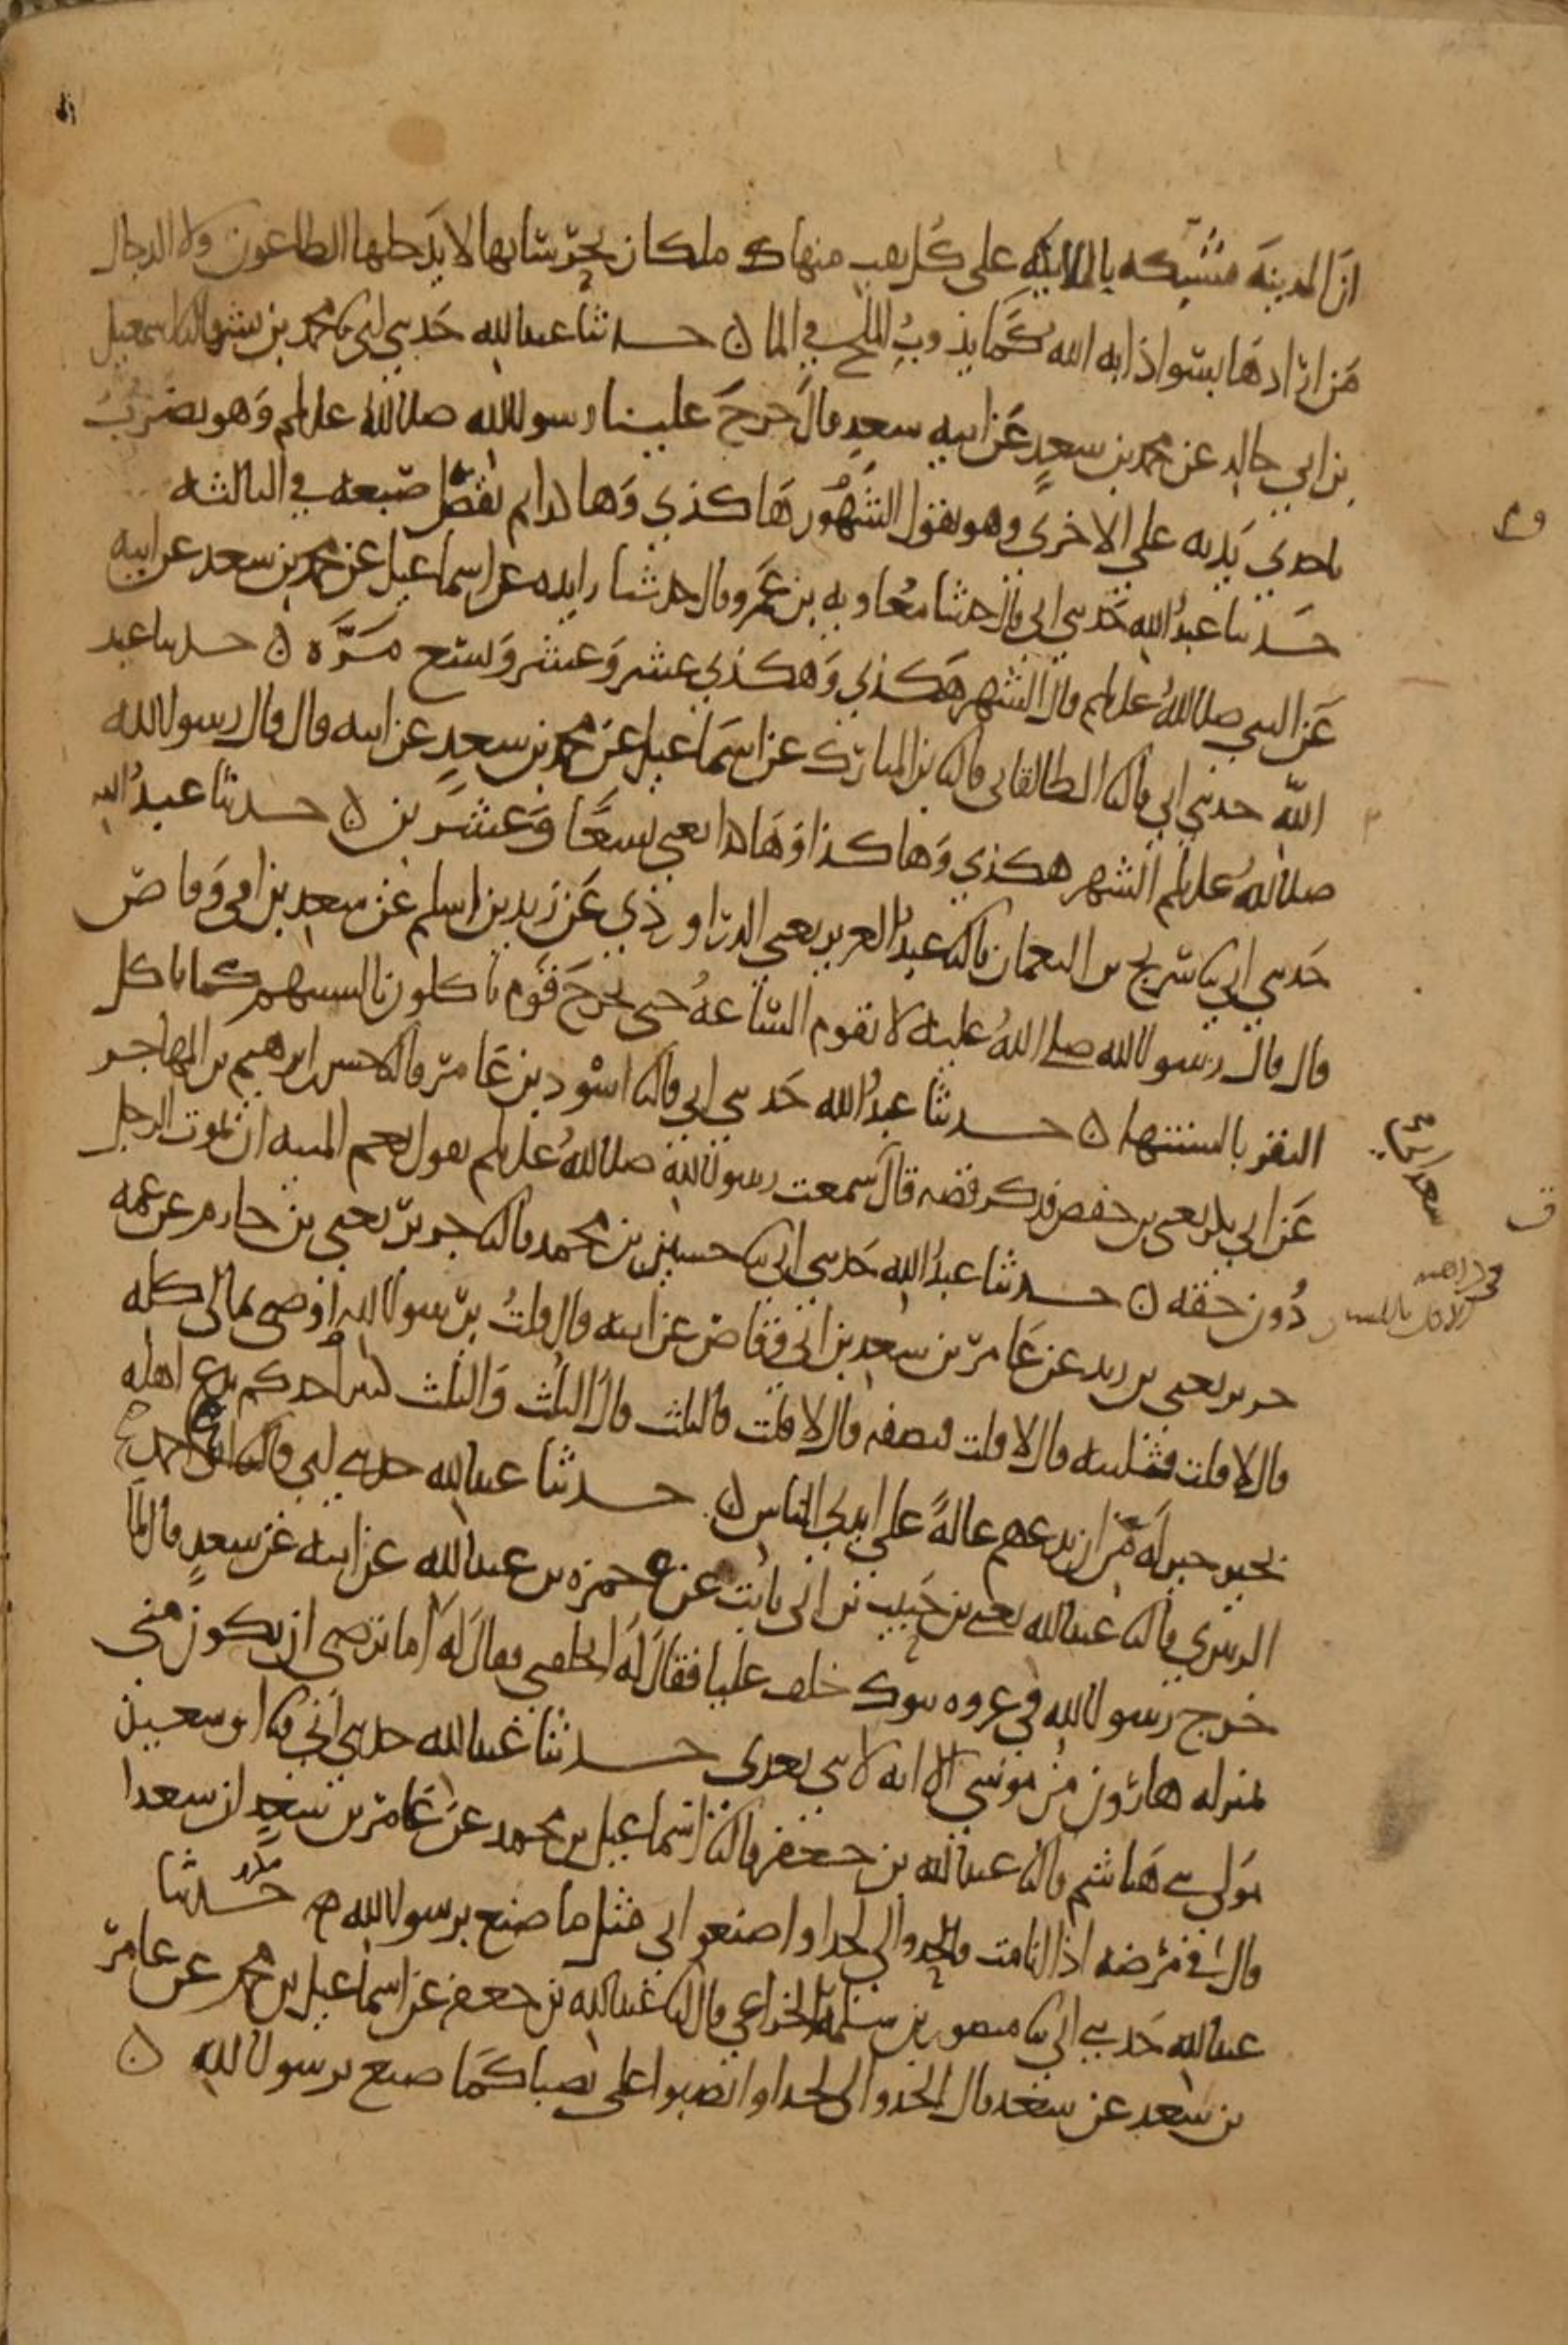 ان المدينة مشبكه بالملايكه على كل نقب منها ملكان يحرسانها لا يدخلها الطاعون ولا الدجال
من ارادها بسوا اذابه الله كما يذوب الملح في الما ه حدثنا عبدالله حدثني ابي نا محمد بن بشر قال نا اسمعيل
بن ابي خالد عن محمد بن سعد عن ابيه سعد قال خرج علينا رسول الله صلى الله عليه وسلم وهو يضرب
باحدي يديه علي الاخري وهو يقول الشهور هاكذي وهاكذا ثم نقص اصبعه في الثالثه
حدثنا عبد الله حدثني ابي قال حدثنا معاويه بن عمرو قال حدثنا زايده عن اسماعيل عن محمد بن سعد عن ابيه
عن النبي صلى الله عليه وسلم قال الشهر هكذي وهكذي عشر وعشر وتسع مرة ه حدثنا عبد
الله حدثني ابي قال نا الطالقاني قال نا بن المبارك عن اسماعيل عن محمد بن سعد عن ابيه قال قال رسول الله
صلى الله عليه وسلم الشهر هكذي وهاكذا وهاكذا يعني تسعا وعشرين ه حدثنا عبد الله
حدثني ابي نا سريج بن النعمان قال نا عبد العزيز يعني الدراوردي عن زيد بن اسلم عن سعد بن ابي وقاص
قال قال رسول الله صلى الله عليه لا تقوم الساعة حتى يخرج قوم ياكلون بالسنتهم كما ياكل
البقر بالسنتها ه حدثنا عبد الله حدثني ابي قال نا اسود بن عامر قال نا حسن ابرهيم بن المهاجر
عن ابي بكر يعني بن حفص فذكر قصه قال سمعت رسول الله صلى الله عليه وسلم يقول نعم الميته ان يموت الرجل
دون حقه ه حدثنا عبد الله حدثني ابي نا حسين بن محمد قال نا جرير يعني بن حازم عن عمه
جرير يعني بن زيد عن عامر بن سعد بن ابي وقاص عن ابيه قال قلت يرسول الله اوصي بمالي كله
قال لا قلت فثلثيه قال لا قلت فنصفه قال لا قلت فالثلث قال الثلث والثلث كثير احدكم يدع اهله
بخير خير له من ان يدعهم عالة علي ايدي الناس ه حدثنا عبدالله حدثني ابي قال نا ابو احمد
الزبيري قال نا عبدالله يعني بن حبيب بن ابي ثابت عن حمزه بن عبدالله عن ابيه عن سعد قال لما
خرج رسول الله في غزوه تبوك خلف عليا فقال له اتخلفني فقال له اما ترضي ان تكون مني
بمنزله هارون من موسي الا انه لا نبي بعدي حدثنا عبدالله حدثني ابي نا ابو سعيد
مولى بني هاشم قال نا عبدالله بن جعفر قال نا اسماعيل بن محمد عن عامر بن سعد ان سعدا
قال في مرضه اذا انا مت فالحدوا لي لحدا واصنعوا بي مثل ما صنع برسول الله حدثنا
عبدالله حدثني ابي نا منصور بن سلمة الخزاعي قال نا عبدالله بن جعفر عن اسماعيل بن محمد عن عامر
بن سعد عن سعد قال الحدوا لي لحدا وانصبوا علي نصبا كما صنع برسول الله ه